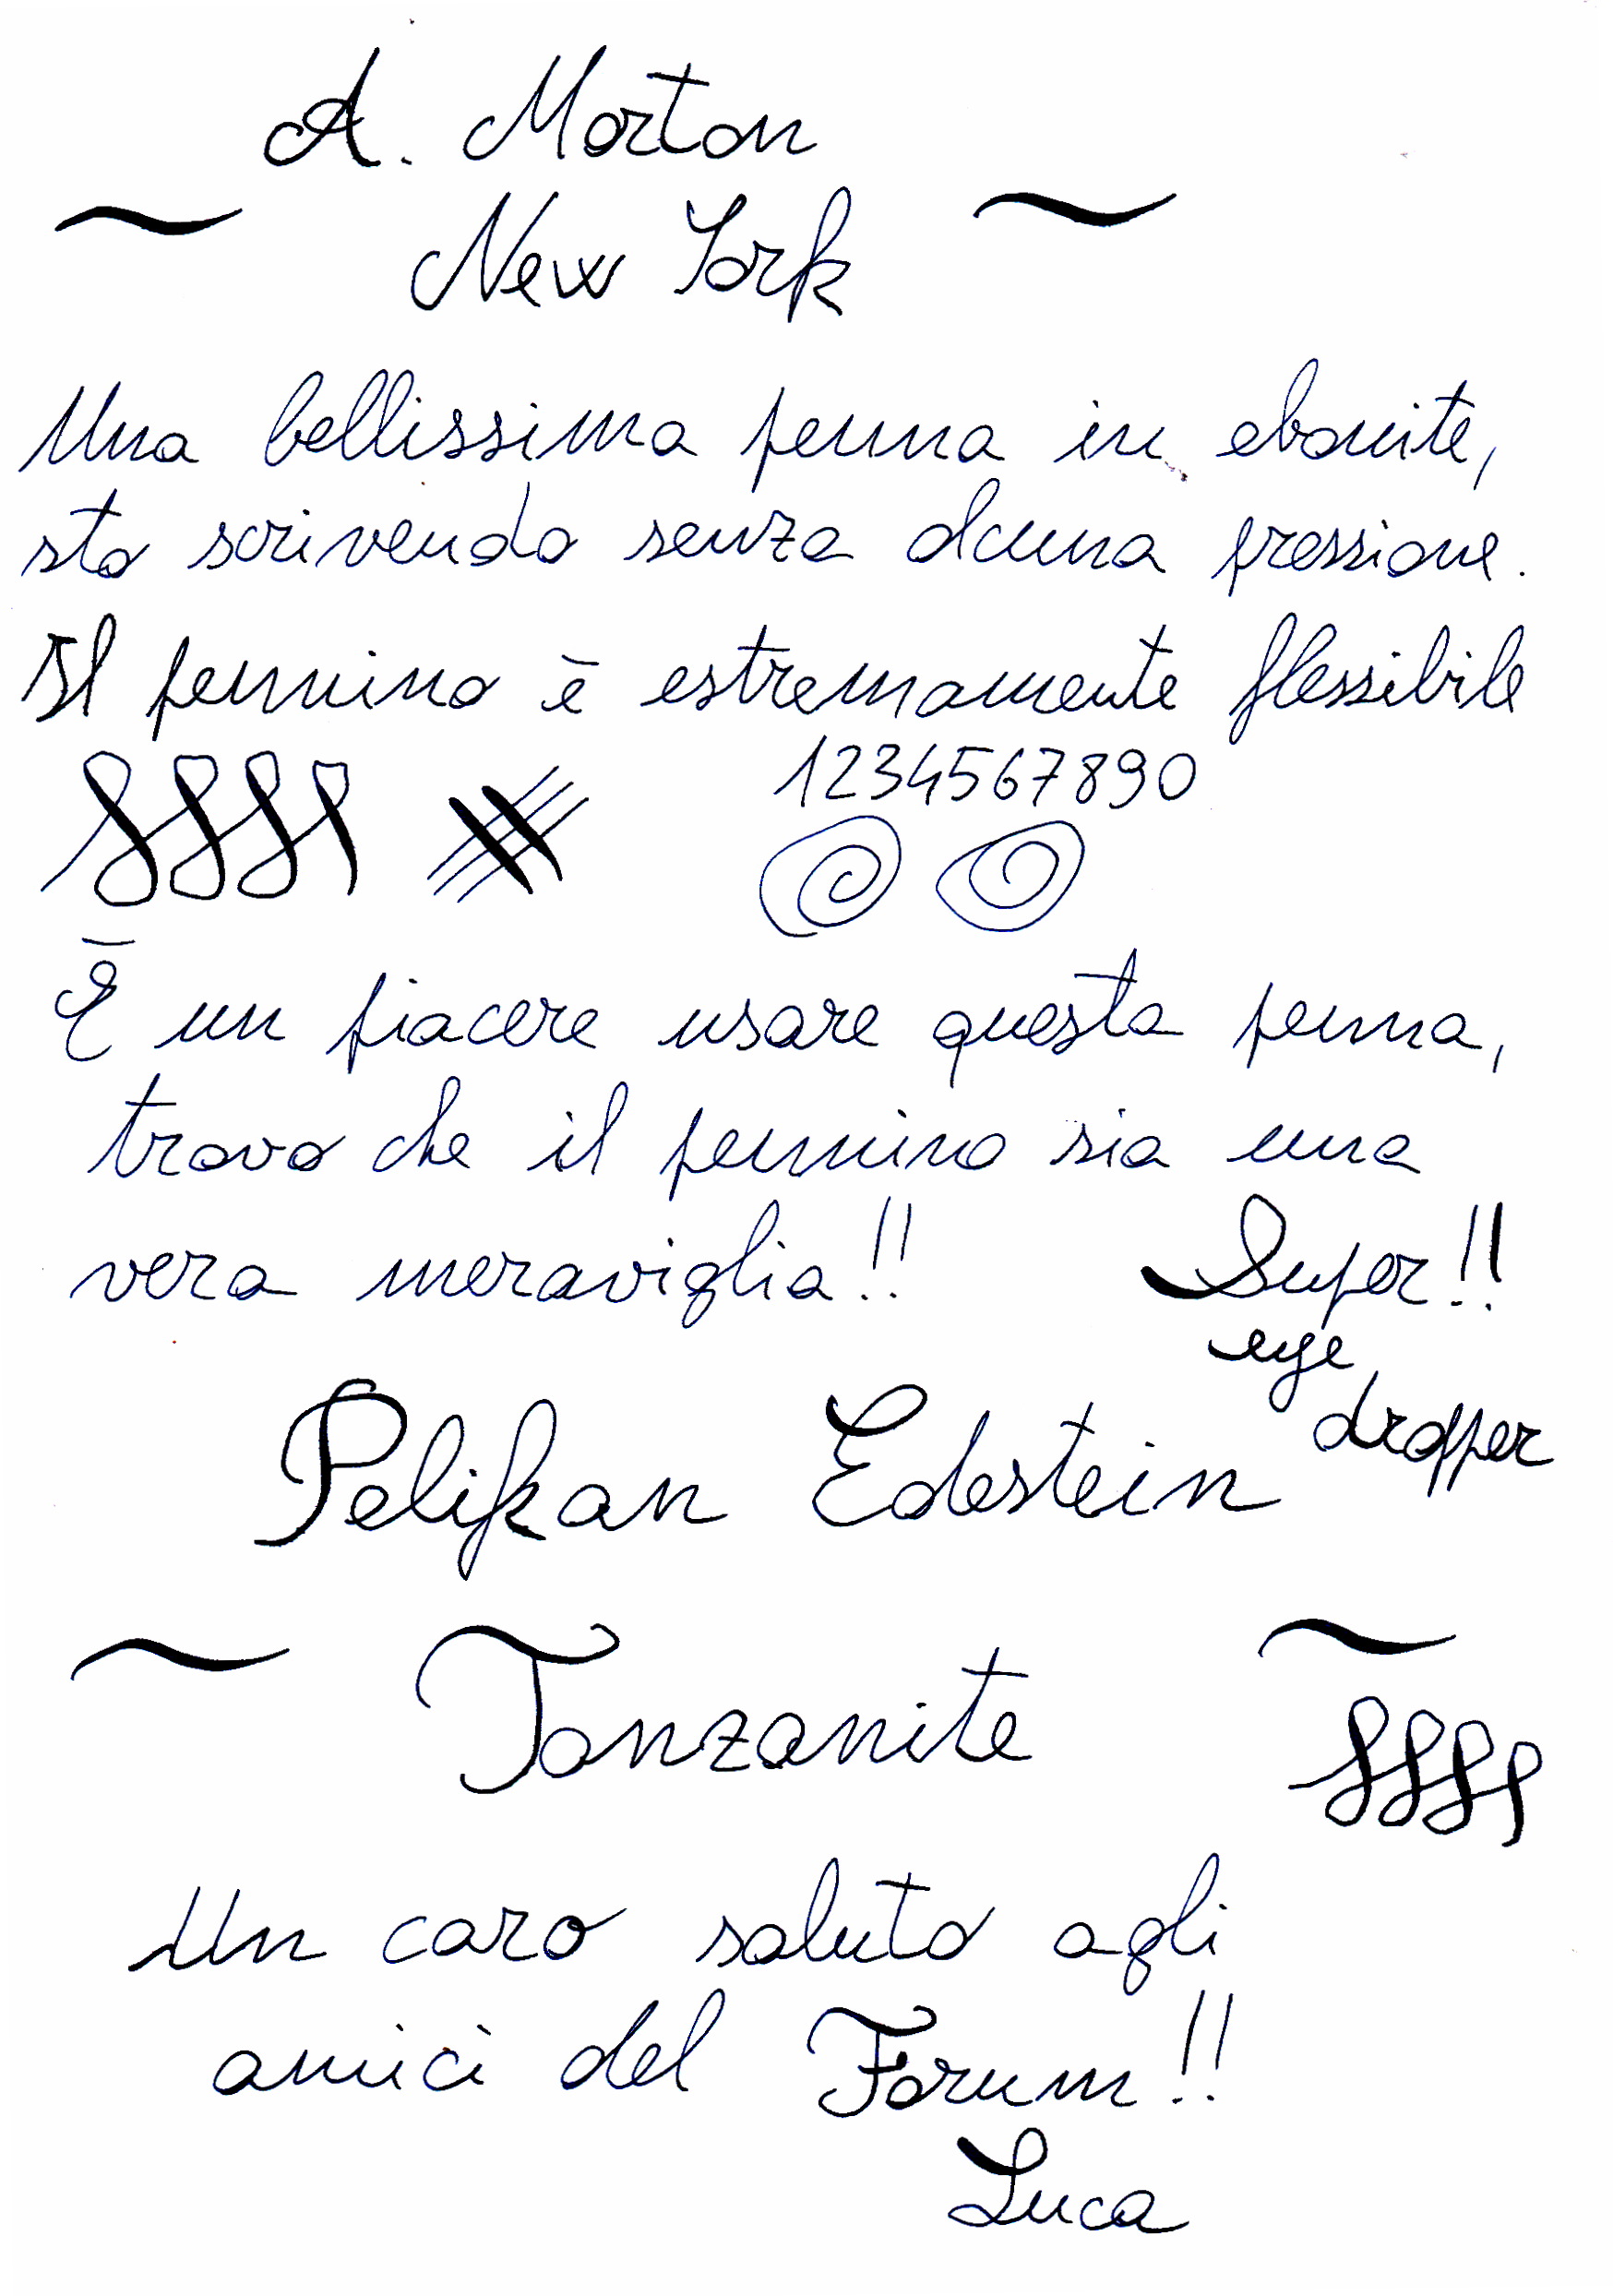 A. Morton
New York
Una bellissima penna in ebanite,
sto scrivendo senza alcuna pressione.
Il pennino è estremamente flessibile
1234567890
È un piacere usare questa penna,
trovo che il pennino sia una
vera meraviglia!!
Super!!
eye
dropper
Pelikan Edestein
Tanzanite
Un caro saluto agli
amici del Forum!!
Luca